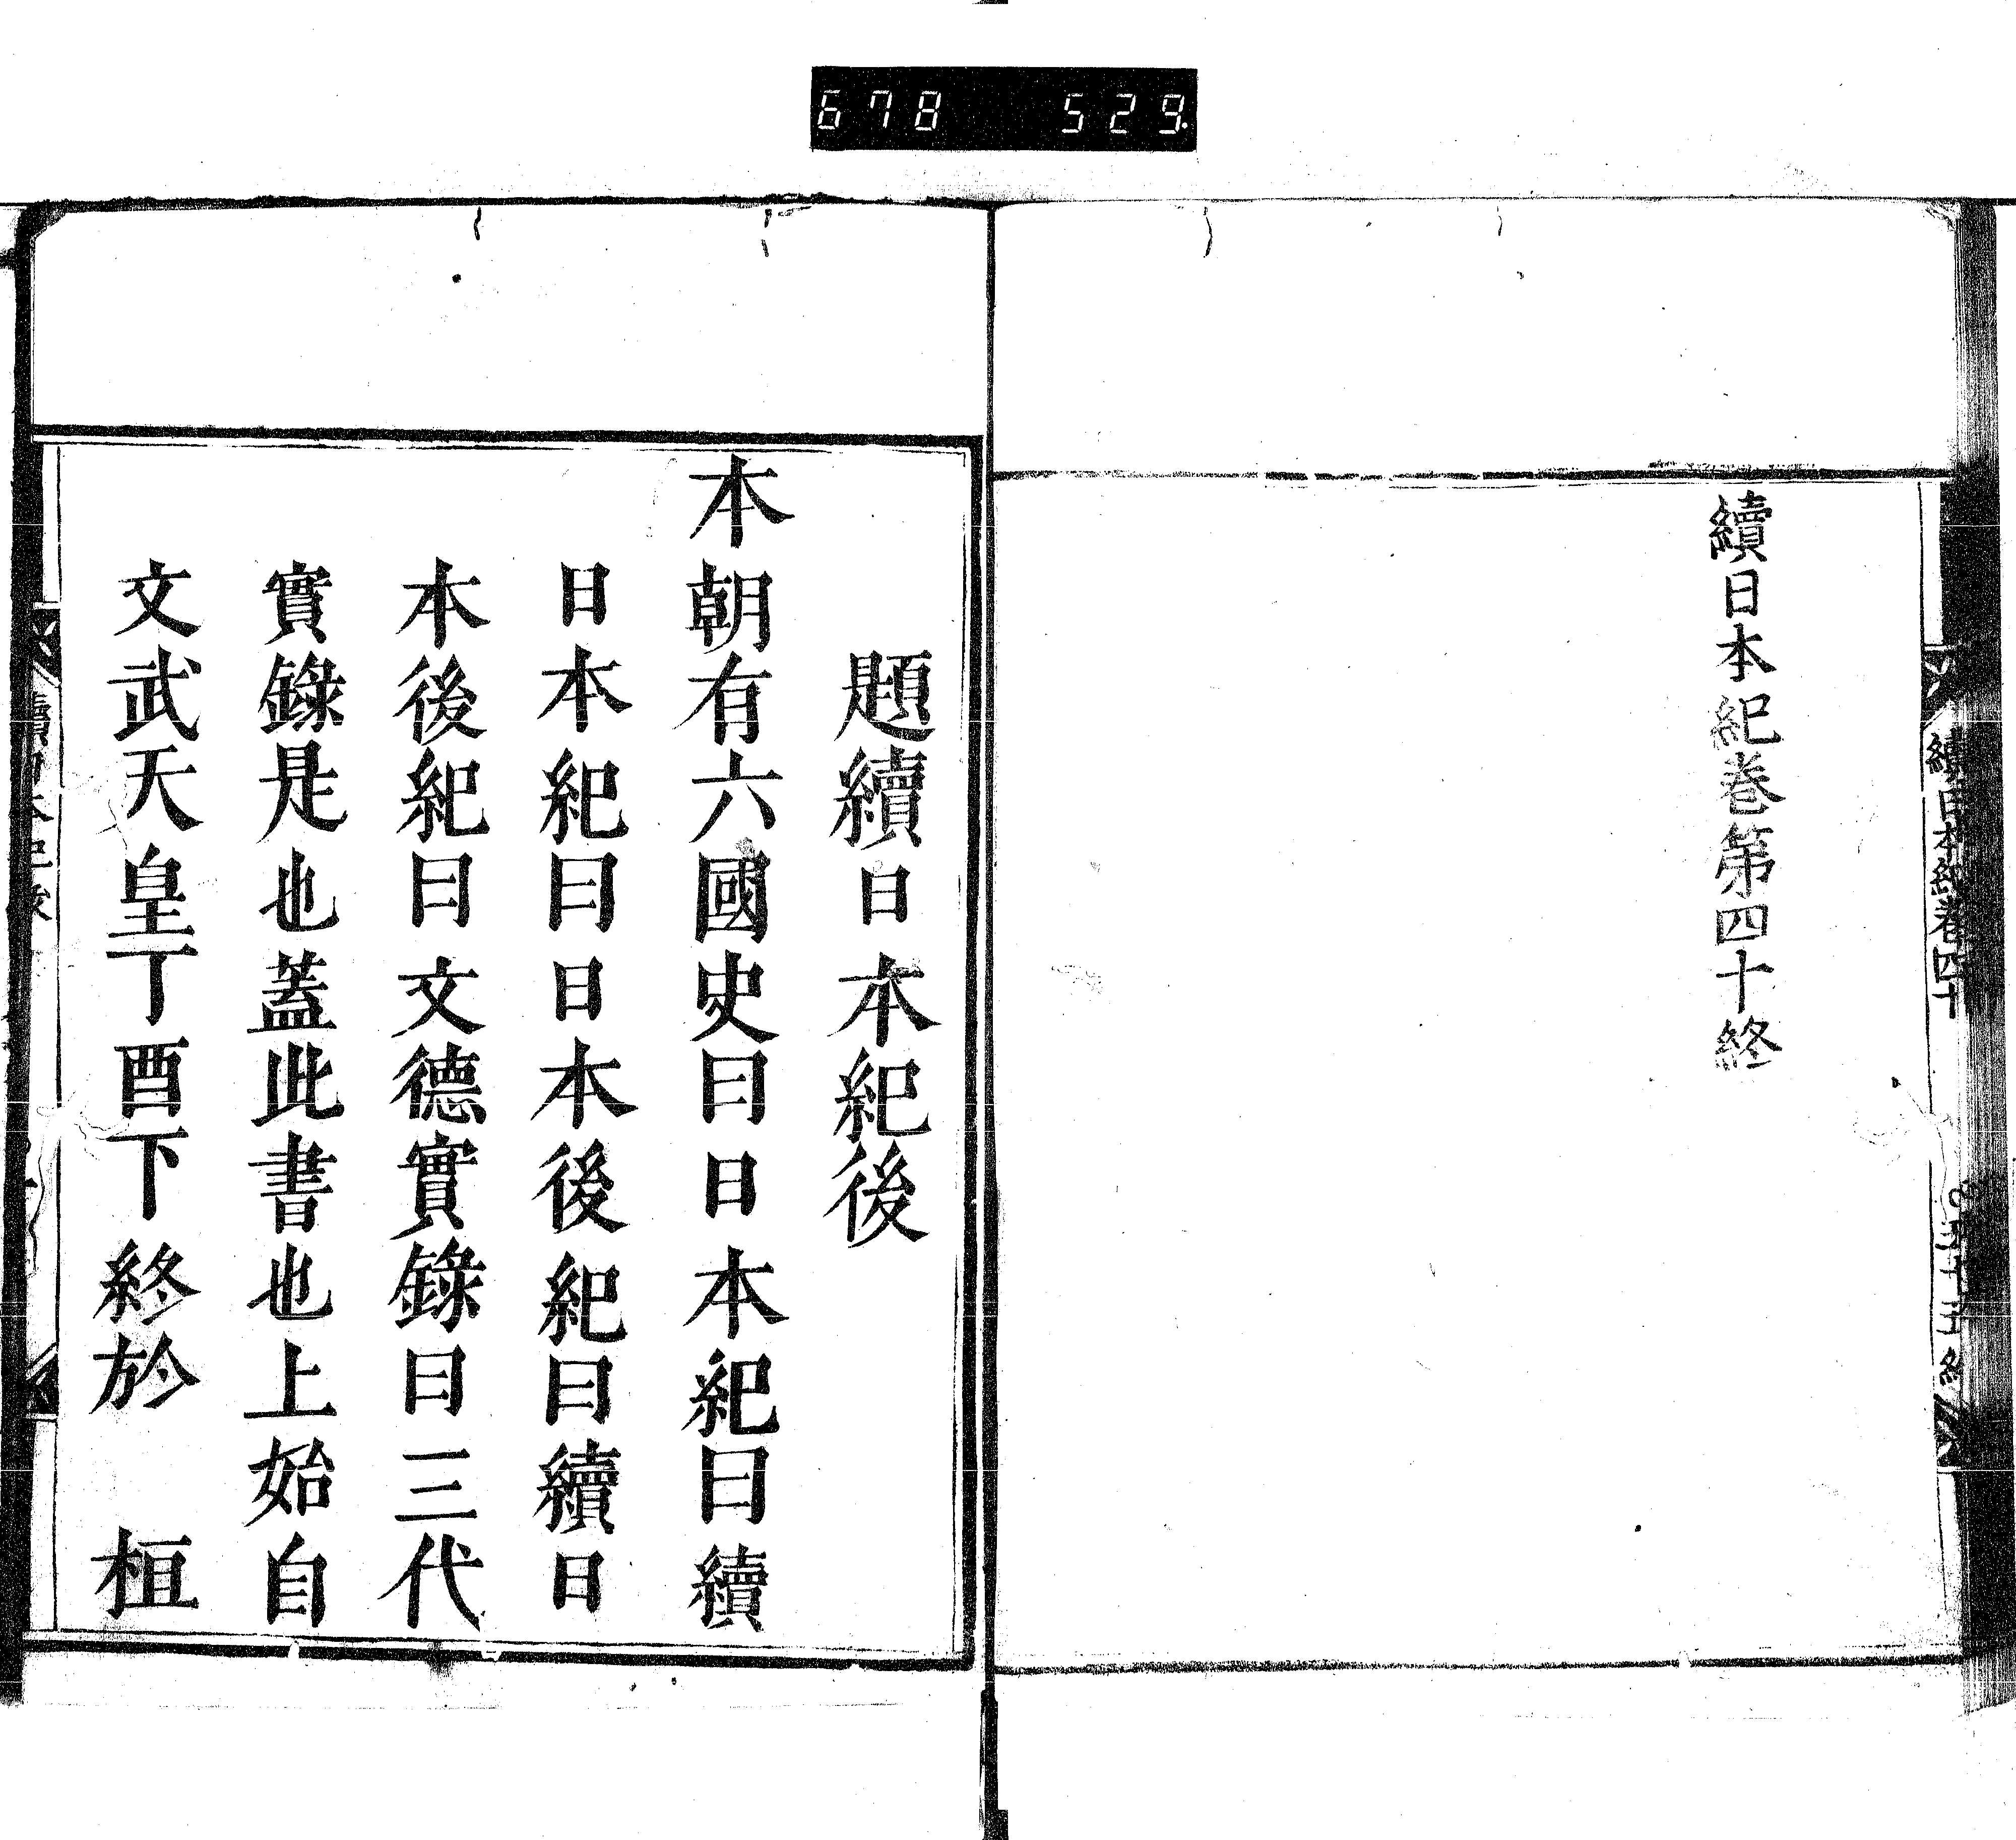 678 529
續日本紀卷四十
續日本紀卷第四十終
題續日本紀後
本朝有六國史曰日本紀曰續
日本紀曰日本後紀曰續日
本後紀曰文德實錄曰三代
實錄是也蓋此書也上始自
文武天皇丁酉下終於　桓